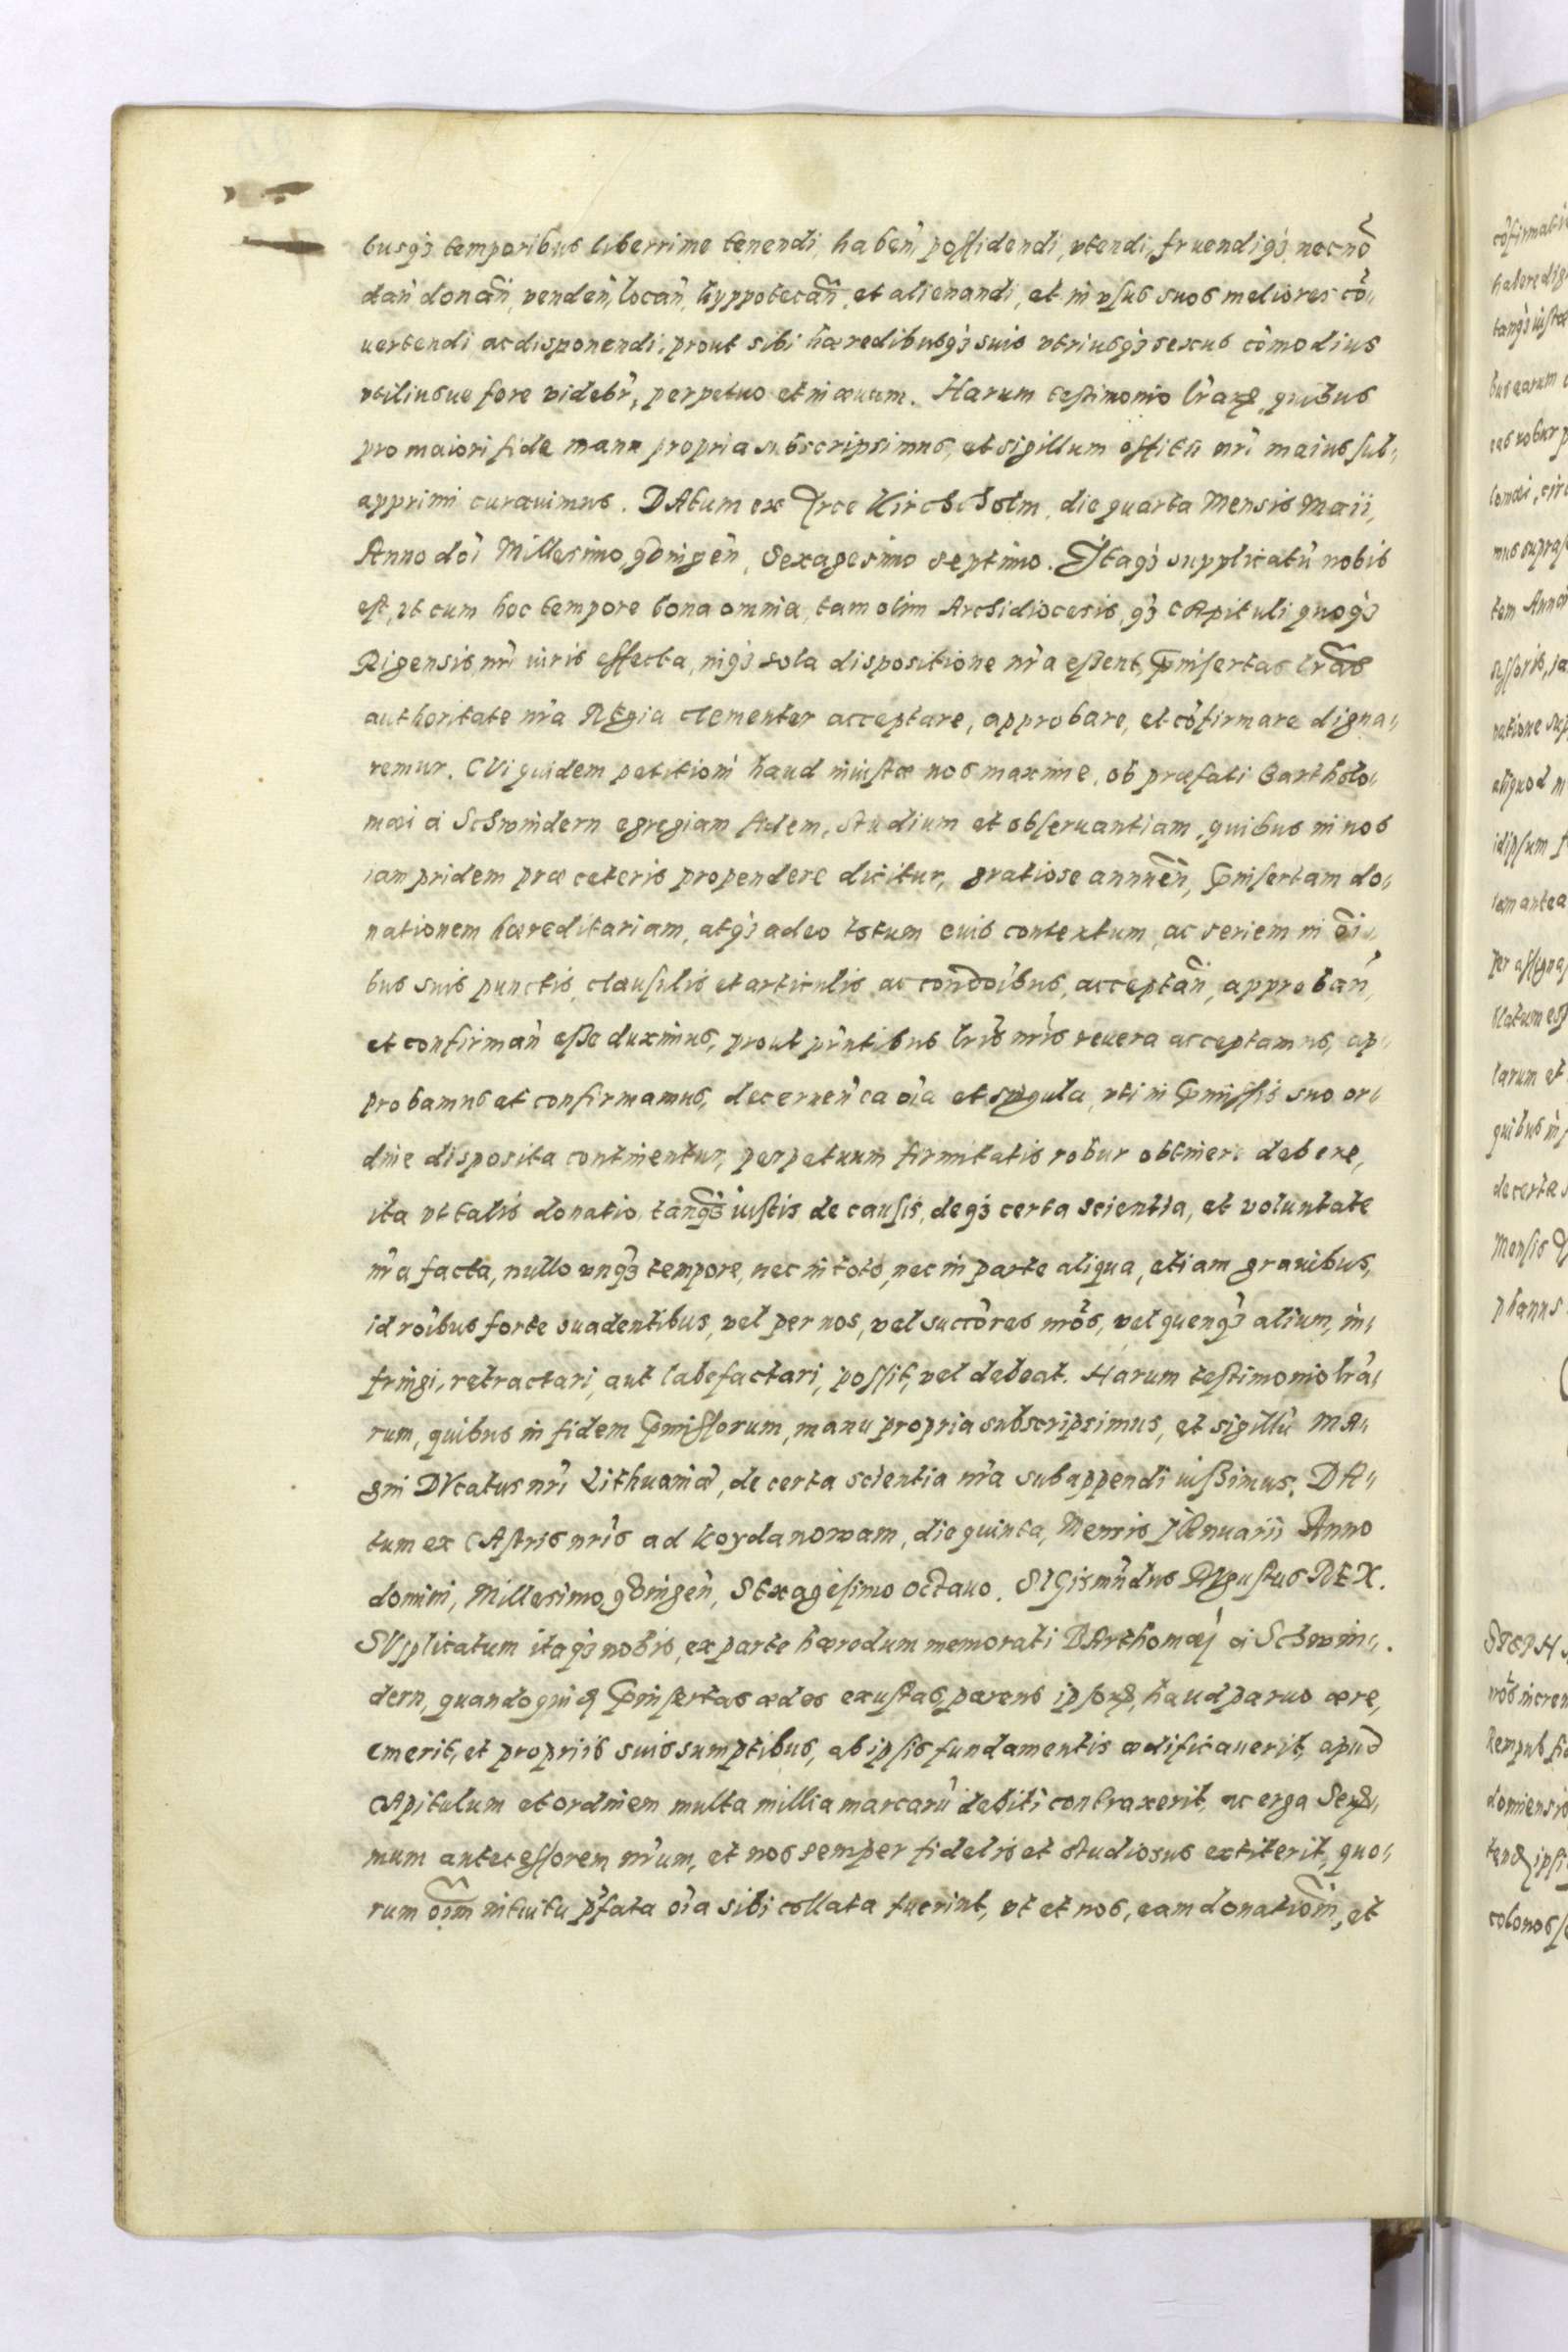 busq́; temporibus liberrime tenendi, haben̄, possidendi, vtendi, fruendiq́;, necnō
dan̄ donan̄, venden̄, locan̄, hyppotecan̄, et alienandi, et in vsus suos meliores cō„
uertendi ac disponendi, prout sibi hæredibusq́; suis vtriusq́; sexus cōmodius
vtiliusue fore videbr̄, perpetuo et in æuum. Harum testimonio lr̄arꝝ, quibus
pro maiori fide manu propria subscripsimus, et sigillum officii nr̄i maius sub„
apprimi curauimus. DAtum ex Arce Kirchholm, die quarta Mensis Maii,
Anno dn̄i Millesimo, qͦuingen̄, Sexagesimo septimo. Itaq́; supplicatū nobis
est, vt cum hoc tempore bona omnia, tam olim Archidiocesis, q́; CApituli quoq́;
Rigensis, nr̄i iuris effecta, inq́; sola dispositione nr̄a essent, p̄insertas lr̄as
authoritate nr̄a REgia clementer acceptare, approbare, et cōfirmare digna„
remur. CVi quidem petitioni haud iniustæ nos maxime, ob præfati Bartholo„
mæi à Schwindern egregiam fidem, studium et obseruantiam, quibus in nos
iam pridem præ ceteris propendere dicitur, gratiose annuen̄, p̄insertam do„
nationem hæreditariam, atq́; adeo totum euis contextum, ac seriem in oī„
bus suis punctis, clausulis et articulis, ac condōibus, acceptan̄, approban̄,
et confirman̄ esse duximus, prout pn̄tibus lr̄is nr̄is reuera acceptamus, ap„
probamus et confirmamus, decernen̄ ea oīa et singula, vti in p̄missis suo or„
dine disposita continentur, perpetuum firmitatis robur obtinere debere,
ita vt talis donatio, tanq́; iustis de causis, deq́; certa scientia, et voluntate
nr̄a facta, nullo vnq́; tempore, nec in toto, nec in parte aliqua, etiam grauibus,
id rōibus forte suadentibus, vel per nos, vel succōres nrōs, vel quenq́; alium, in„
fringi, retractari, aut labefactari, possit, vel debeat. Harum testimonio lr̄a„
rum, quibus in fidem p̄missorum, manu propria subscripsimus, et sigillū MA„
gni DVcatus nr̄i Lithuaniæ, de certa scientia nr̄a subappendi iussimus. DA„
tum ex CAstris nr̄is ad Koydanowam, die quinta, Mensis JAnuarii Anno
domini, Millesimo, qͦuingen̄, SExagesimo octauo. SIGismūdus AVgustus REX.
SVpplicatum itaq́; nobis, ex parte hæredum memorati BArthomæj à Schwin„
dern, quandoquidꝫ p̄insertas ædes exustas, parens ipsorꝝ, haud paruo ære,
emerit, et propriis suis sumptibus, ab ipsis fundamentis ædificauerit, apud
CApitulum et ordinem multa millia marcarū debiti contraxerit, ac erga Serꝫ„
mum antecessorem nr̄um, et nos semper fidelis et studiosus extiterit, quo„
rum oīm intuitu p̄fata oīa sibi collata fuerint, vt et nos, eam donatiōm, et